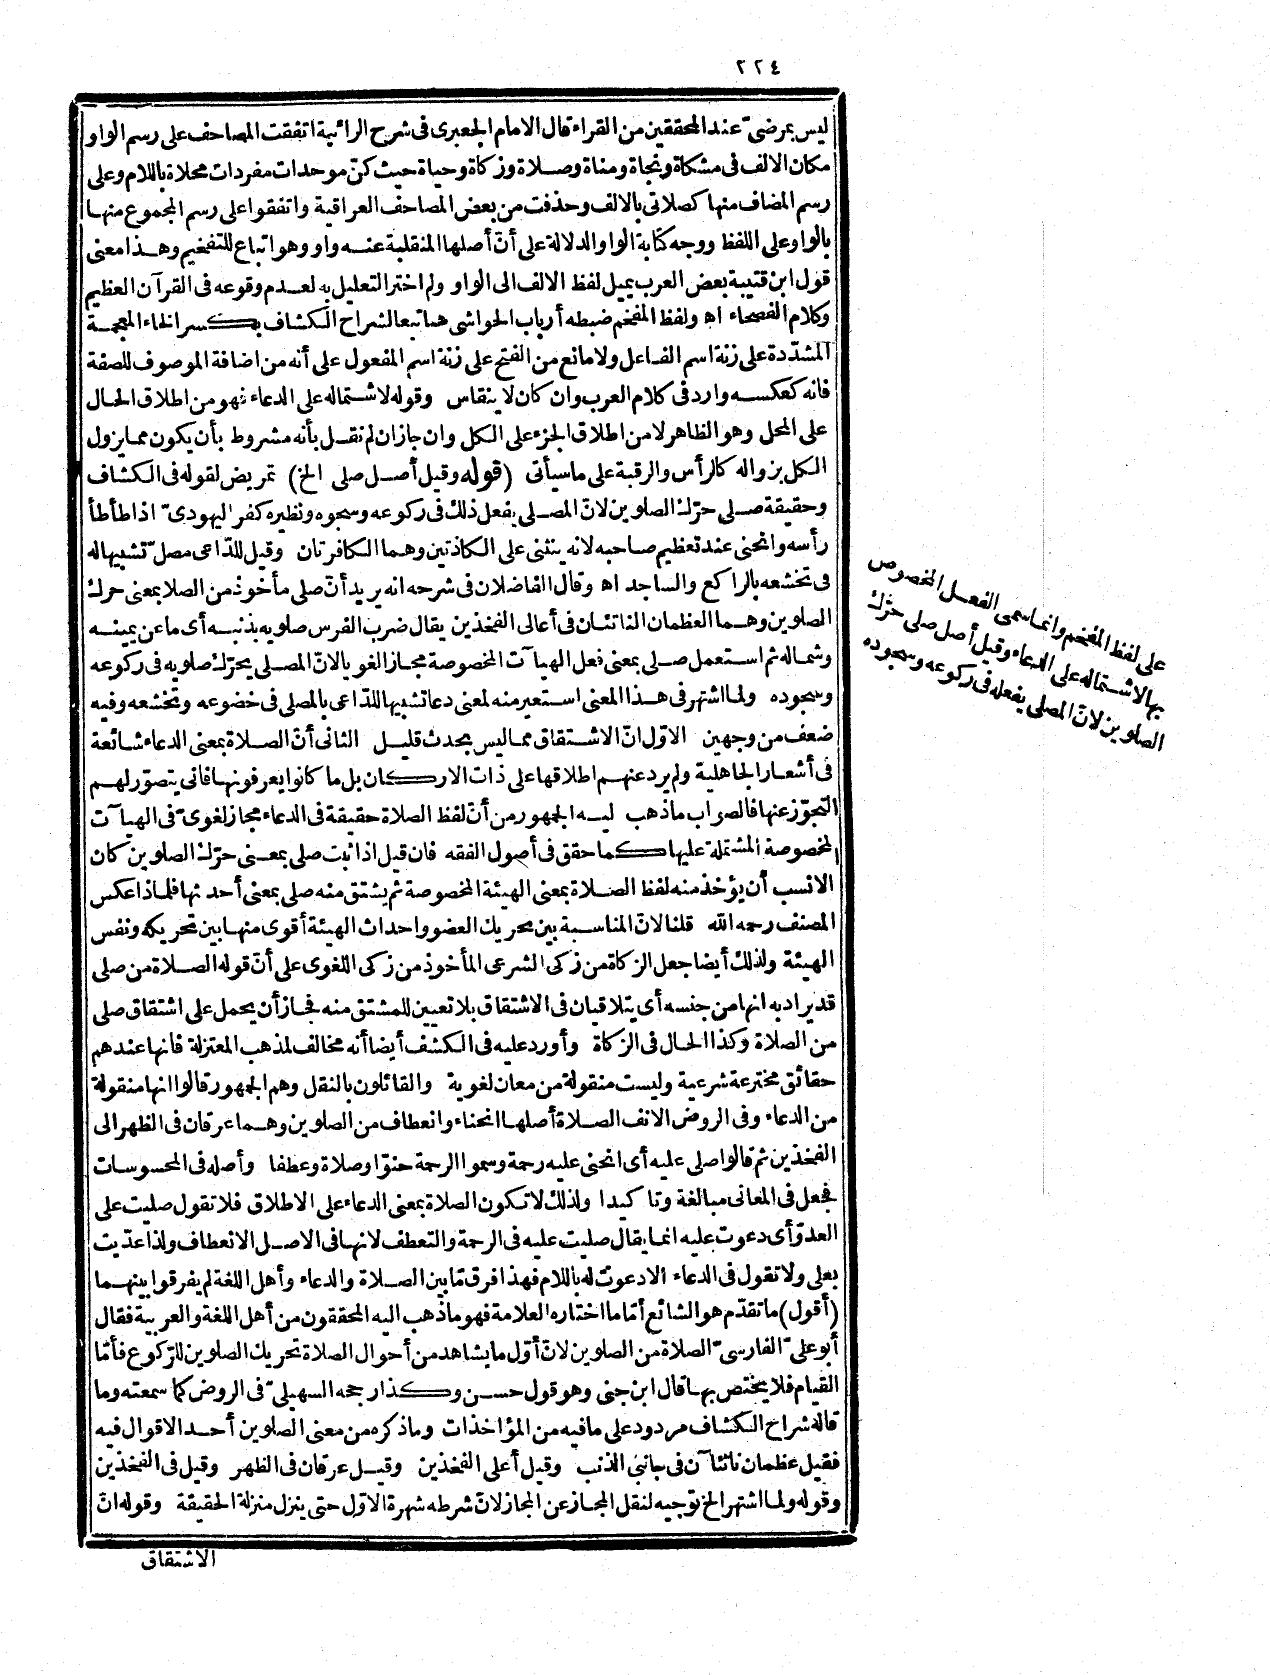 ٢٢٤
ليس بمرضيّ عند المحققين من القراء قال الامام الجعبرى فى شرح الرائية اتفقت المصاحف على رسم الواو
مكان الالف فى مشكاة ونجاة ومناة وصلاة وزكاة وحياة حيث كنّ موحدات مفردات محلاة باللام وعلى
رسم المضاف منها كصلاتى بالالف وحذفت من بعض المصاحف العراقية واتفقوا على رسم المجموع منها
بالواو على اللفظ ووجه كتابة الواو الدلالة على أنّ أصلها المنقلبة عنه واو وهو اتباع للتفخيم وهذا معنى
قول ابن قتيبة بعض العرب يميل لفظ الالف الى الواو ولم اختر التعليل به لعدم وقوعه فى القرآن العظيم
وكلام الفصحاء اه ولفظ المفخم ضبطه أرباب الحواشى هنا تبعا لشراح الكشاف بكسر الخاء المعجمة
المشدّدة على زنة اسم الفاعل ولا مانع من الفتح على زنة اسم المفعول على أنه من اضافة الموصوف للصفة
فانه كعكسه وارد فى كلام العرب وان كان لا ينقاس وقوله لاشتماله على الدعاء فهو من اطلاق الحال
على المحل وهو الظاهر لا من اطلاق الجزء على الكل وان جاز ان لم نقل بأنه مشروط بأن يكون مما يزول
الكل بزواله كالرأس والرقبة على ما سيأتى (قوله وقيل أصل صلى الخ) تمريض لقوله فى الكشاف
وحقيقة صلى حرّك الصلوين لانّ المصلى يفعل ذلك فى ركوعه وسجوده ونظيره كفر اليهودىّ اذا طأطأ
رأسه وانحنى عند تعظيم صاحبه لانه ينثنى على الكاذتين وهما الكافرتان وقيل للدّاعى مصلّ تشبيها له
فى تخشعه بالراكع والساجد اه وقال الفاضلان فى شرحه انه يريد أنّ صلى مأخوذ من الصلا بمعنى حرك
الصلوين وهما العظمان الناتئان فى أعالى الفخذين يقال ضرب الفرس صلويه بذنبه أى ما عن يمينه
وشماله ثم استعمل صلى بمعنى فعل الهيآت المخصوصة مجازا لغويا لانّ المصلى يحرّك صلويه فى ركوعه
وسجوده ولما اشتهر فى هذا المعنى استعير منه لمعنى دعا تشبيها للدّاعى بالمصلى فى خضوعه وتخشعه وفيه
ضعف من وجهين الاوّل انّ الاشتقاق مما ليس بحدث قليل الثانى أنّ الصلاة بمعنى الدعاء شائعة
فى أشعار الجاهلية ولم يرد عنهم اطلاقها على ذات الاركان بل ما كانوا يعرفونها فانى يتصوّر لهم
التجوّز عنها فالصراب ما ذهب ليه الجمهور من أنّ لفظ الصلاة حقيقة فى الدعاء مجاز لغوىّ فى الهيآت
المخصوصة المشتملة عليها كما حقق فى أصول الفقه فان قيل اذا ثبت صلى بمعنى حرّك الصلوين كان
الانسب أن يؤخذ منه لفظ الصلاة بمعنى الهيئة المخصوصة ثم يشتق منه صلى بمعنى أحدثها فلماذا عكس
المصنف رحمه الله قلنا لانّ المناسبة بين تحريك العضو واحداث الهيئة أقوى منها بين تحريكه ونفس
الهيئة ولذلك أيضا جعل الزكاة من زكى الشرعى المأخوذ من زكى اللغوى على أنّ قوله الصلاة من صلى
قد يراد به انها من جنسه أى يتلاقيان فى الاشتقاق بلا تعيين للمشتق منه فجاز أن يحمل على اشتقاق صلى
من الصلاة وكذا الحال فى الزكاة وأورد عليه فى الكشف أيضا أنه مخالف لمذهب المعتزلة فانها عندهم
حقائق مخترعة شرعية وليست منقولة من معان لغوية والقائلون بالنقل وهم الجمهور قالوا انها منقولة
من الدعاء وفى الروض الانف الصلاة أصلها انحناء وانعطاف من الصلوين وهما عرقان فى الظهر الى
الفخذين ثم قالوا صلى عليه أى انحنى عليه رحمة وسموا الرحمة حنوّا وصلاة وعطفا وأصله فى المحسوسات
فجعل فى المعانى مبالغة وتاكيدا ولذلك لا تكون الصلاة بمعنى الدعاء على الاطلاق فلا تقول صليت على
العدوّ أى دعوت عليه انما يقال صليت عليه فى الرحمة والتعطف لانها فى الاصل الانعطاف ولذا عدّيت
بعلى ولا تقول فى الدعاء الا دعوت له باللام فهذا فرق مّا بين الصلاة والدعاء وأهل اللغة لم يفرقوا بينهما
(أقول) ما تقدّم هو الشائع أمّا ما اختاره العلامة فهو ما ذهب اليه المحققون من أهل اللغة والعربية فقال
أبو علىّ الفارسىّ الصلاة من الصلوين لانّ أوّل ما يشاهد من أحوال الصلاة تحريك الصلوين للرّكوع فأمّا
القيام فلا يختص بها قال ابن جنى وهو قول حسن وكذا رجحه السهيلىّ فى الروض كما سمعته وما
قاله شراح الكشاف مردود على ما فيه من المؤاخذات وما ذكره من معنى الصلوين أحد الاقوال فيه
فقيل عظمان ناتئا آن فى جانبى الذنب وقيل أعلى الفخذين وقيل عرقان فى الظهر وقيل فى الفخذين
وقوله ولما اشتهر الخ توجيه لنقل المجاز عن المجاز لانّ شرطه شهرة الاوّل حتى ينزل منزلة الحقيقة وقوله انّ
الاشتقاق
على لفظ المفخم وانما سمى الفعل المخصوص
بها لاشتماله على الدعاء وقيل أصل صلى حرّك
الصلوين لانّ المصلى يفعله فى ركوعه وسجوده